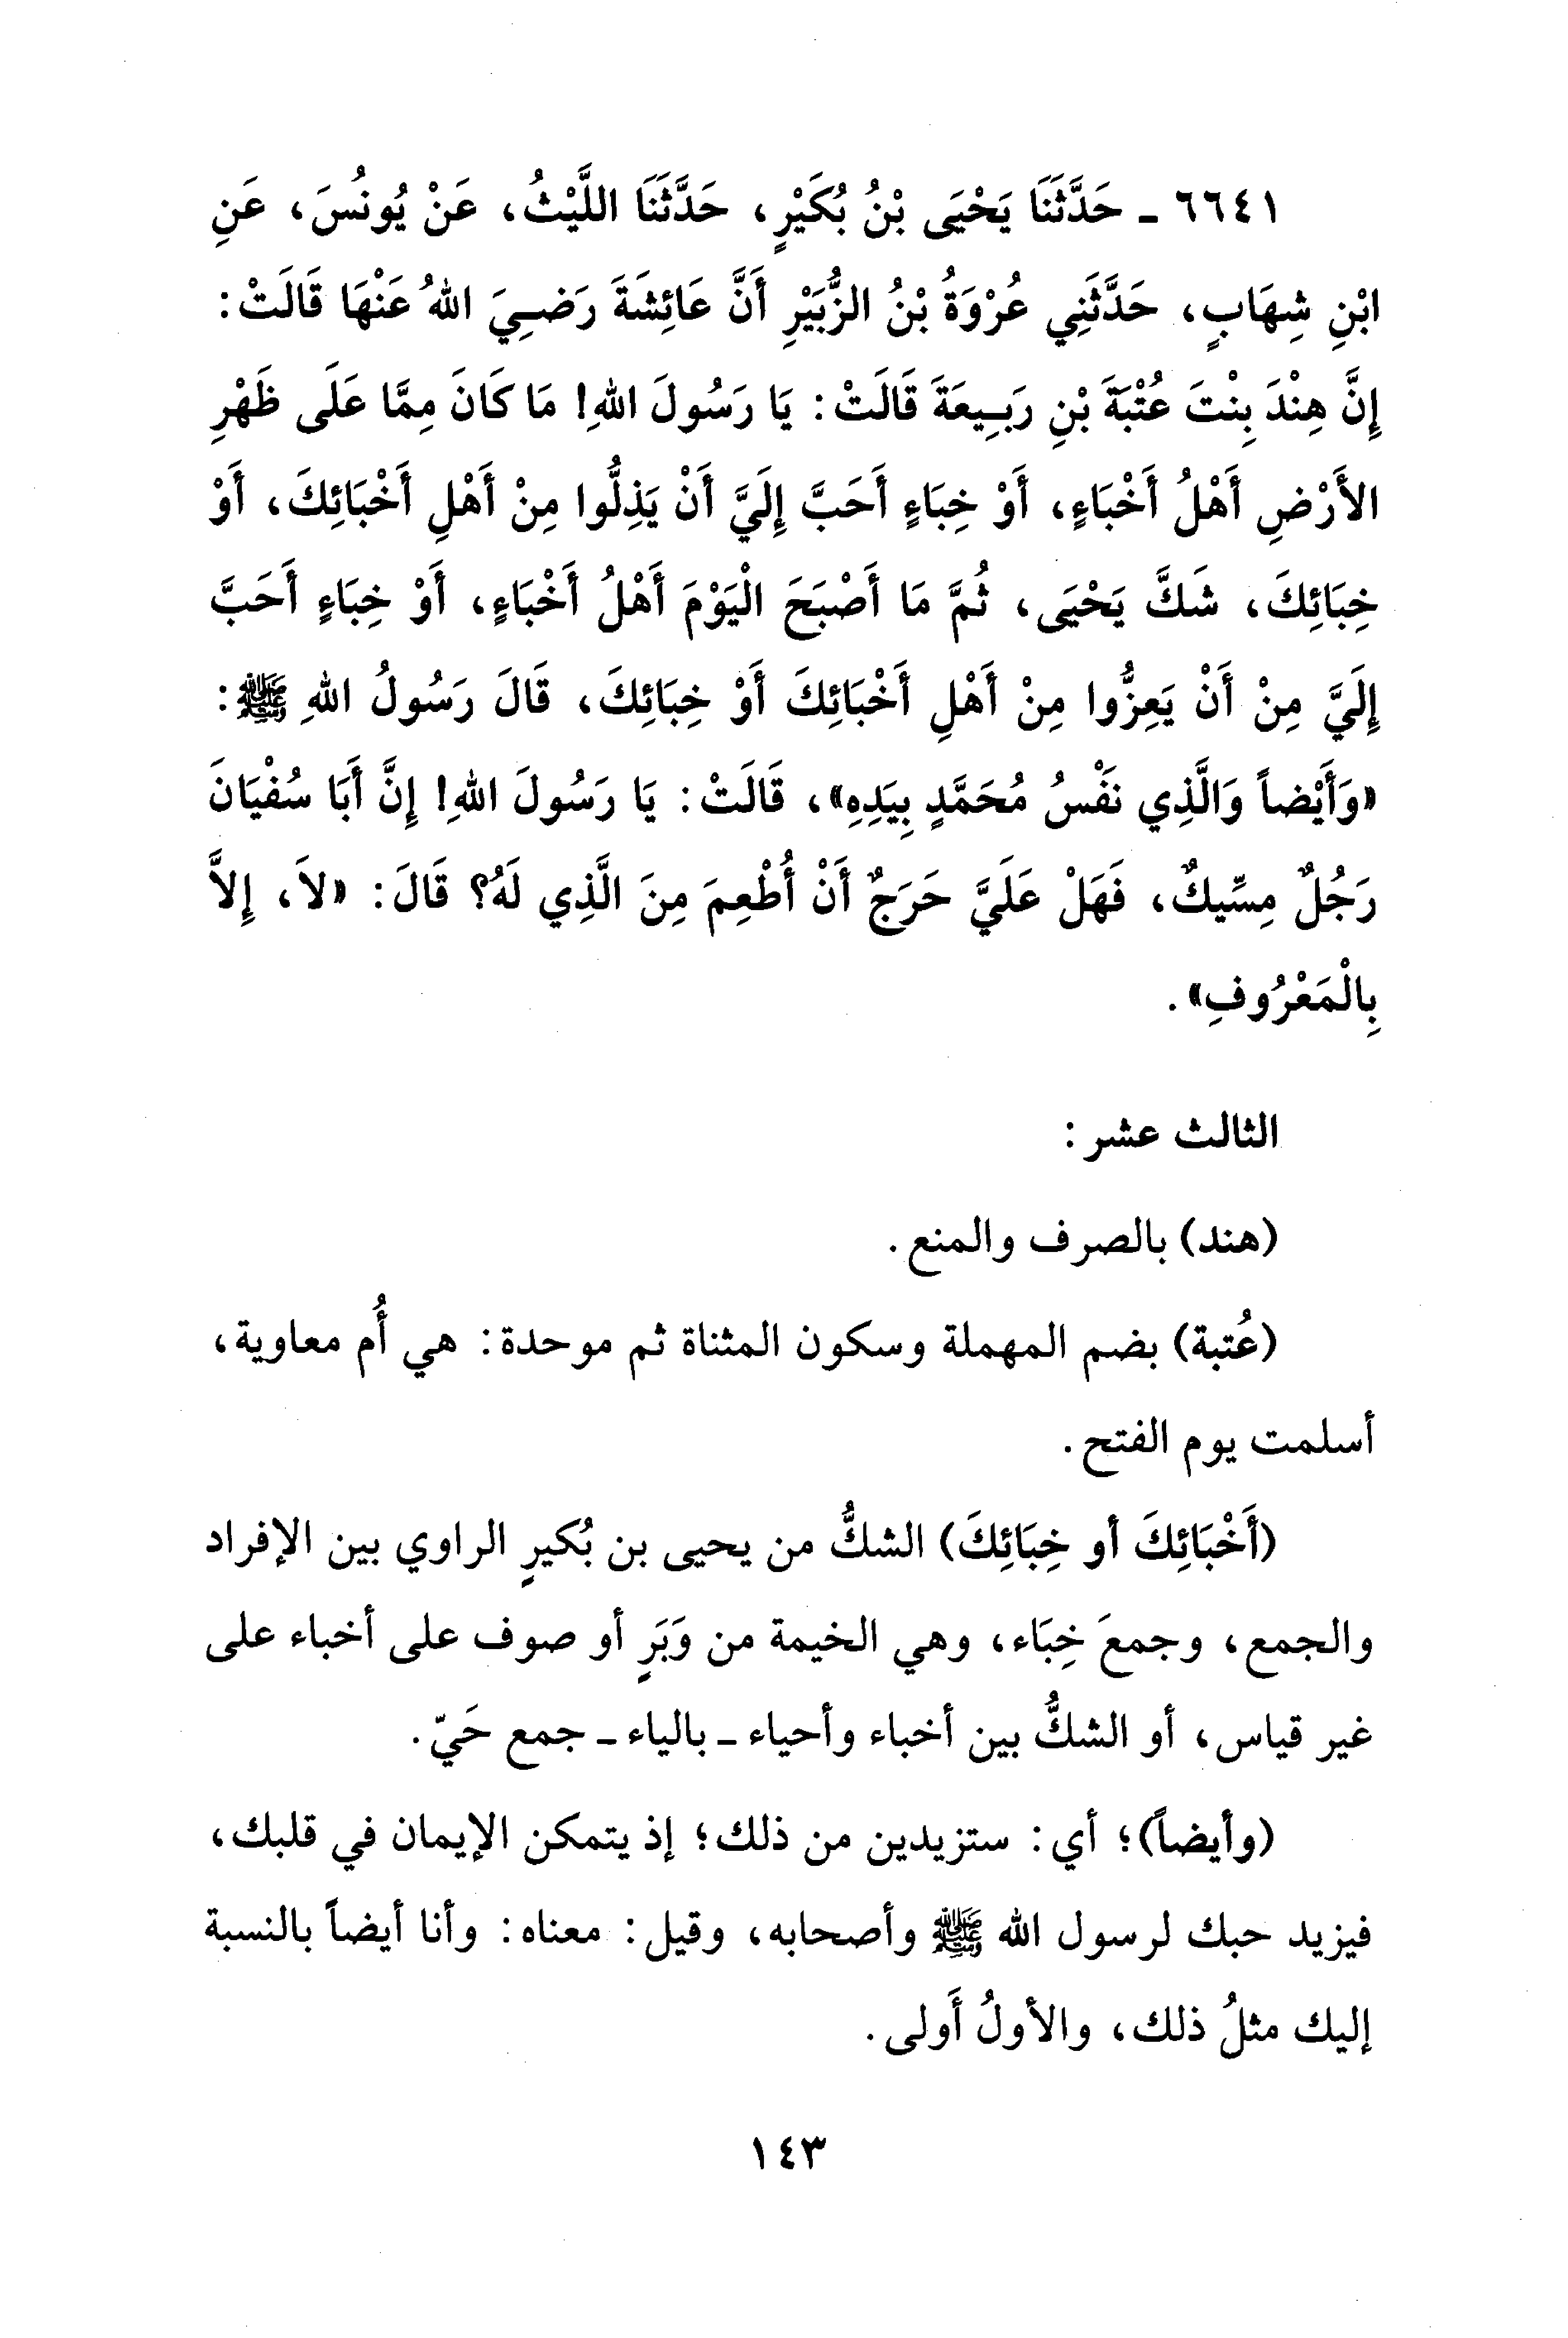 ٦٦٤١ ـ حَدَّثَنَا يَحْيَى بْنُ بُكَيْرٍ، حَدَّثَنَا اللَّيْثُ، عَنْ يُونُسَ، عَنِ
ابْنِ شِهَابٍ، حَدَّثَنِي عُرْوَةُ بْنُ الزُّبَيْرِ أَنَّ عَائِشَةَ رَضِيَ اللهُ عَنْهَا قَالَتْ:
إِنَّ هِنْدَ بِنْتَ عُتْبَةَ بْنِ رَبِيعَةَ قَالَتْ: يَا رَسُولَ اللهِ! مَا كَانَ مِمَّا عَلَى ظَهْرِ
الأَرْضِ أَهْلُ أَخْبَاءٍ، أَوْ خِبَاءٍ أَحَبَّ إِلَيَّ أَنْ يَذِلُّوا مِنْ أَهْلِ أَخْبَائِكَ، أَوْ
خِبَائِكَ، شَكَّ يَحْيَى، ثُمَّ مَا أَصْبَحَ الْيَوْمَ أَهْلُ أَخْبَاءٍ، أَوْ خِبَاءٍ أَحَبَّ
إِلَيَّ مِنْ أَنْ يَعِزُّوا مِنْ أَهْلِ أَخْبَائِكَ أَوْ خِبَائِكَ، قَالَ رَسُولُ اللهِ ﷺ:
«وَأَيْضاً وَالَّذِي نَفْسُ مُحَمَّدٍ بِيَدِهِ»، قَالَتْ: يَا رَسُولَ اللهِ! إِنَّ أَبَا سُفْيَانَ
رَجُلٌ مِسِّيكٌ، فَهَلْ عَلَيَّ حَرَجٌ أَنْ أُطْعِمَ مِنَ الَّذِي لَهُ؟ قَالَ: «لاَ، إِلاَّ
بِالْمَعْرُوفِ».
الثالث عشر:
(هند) بالصرف والمنع.
(عُتبة) بضم المهملة وسكون المثناة ثم موحدة: هي أُم معاوية،
أسلمت يوم الفتح.
(أَخْبَائِكَ أو خِبَائِكَ) الشكُّ من يحيى بن بُكيرٍ الراوي بين الإفراد
والجمع، وجمعَ خِبَاء، وهي الخيمة من وَبَرٍ أو صوف على أخباء على
غير قياس، أو الشكُّ بين أخباء وأحياء ـ بالياء ـ جمع حَيّ.
(وأيضاً)؛ أي: ستزيدين من ذلك؛ إذ يتمكن الإيمان في قلبك،
فيزيد حبك لرسول الله ﷺ وأصحابه، وقيل: معناه: وأنا أيضاً بالنسبة
إليك مثلُ ذلك، والأولُ أَولى.
١٤٣